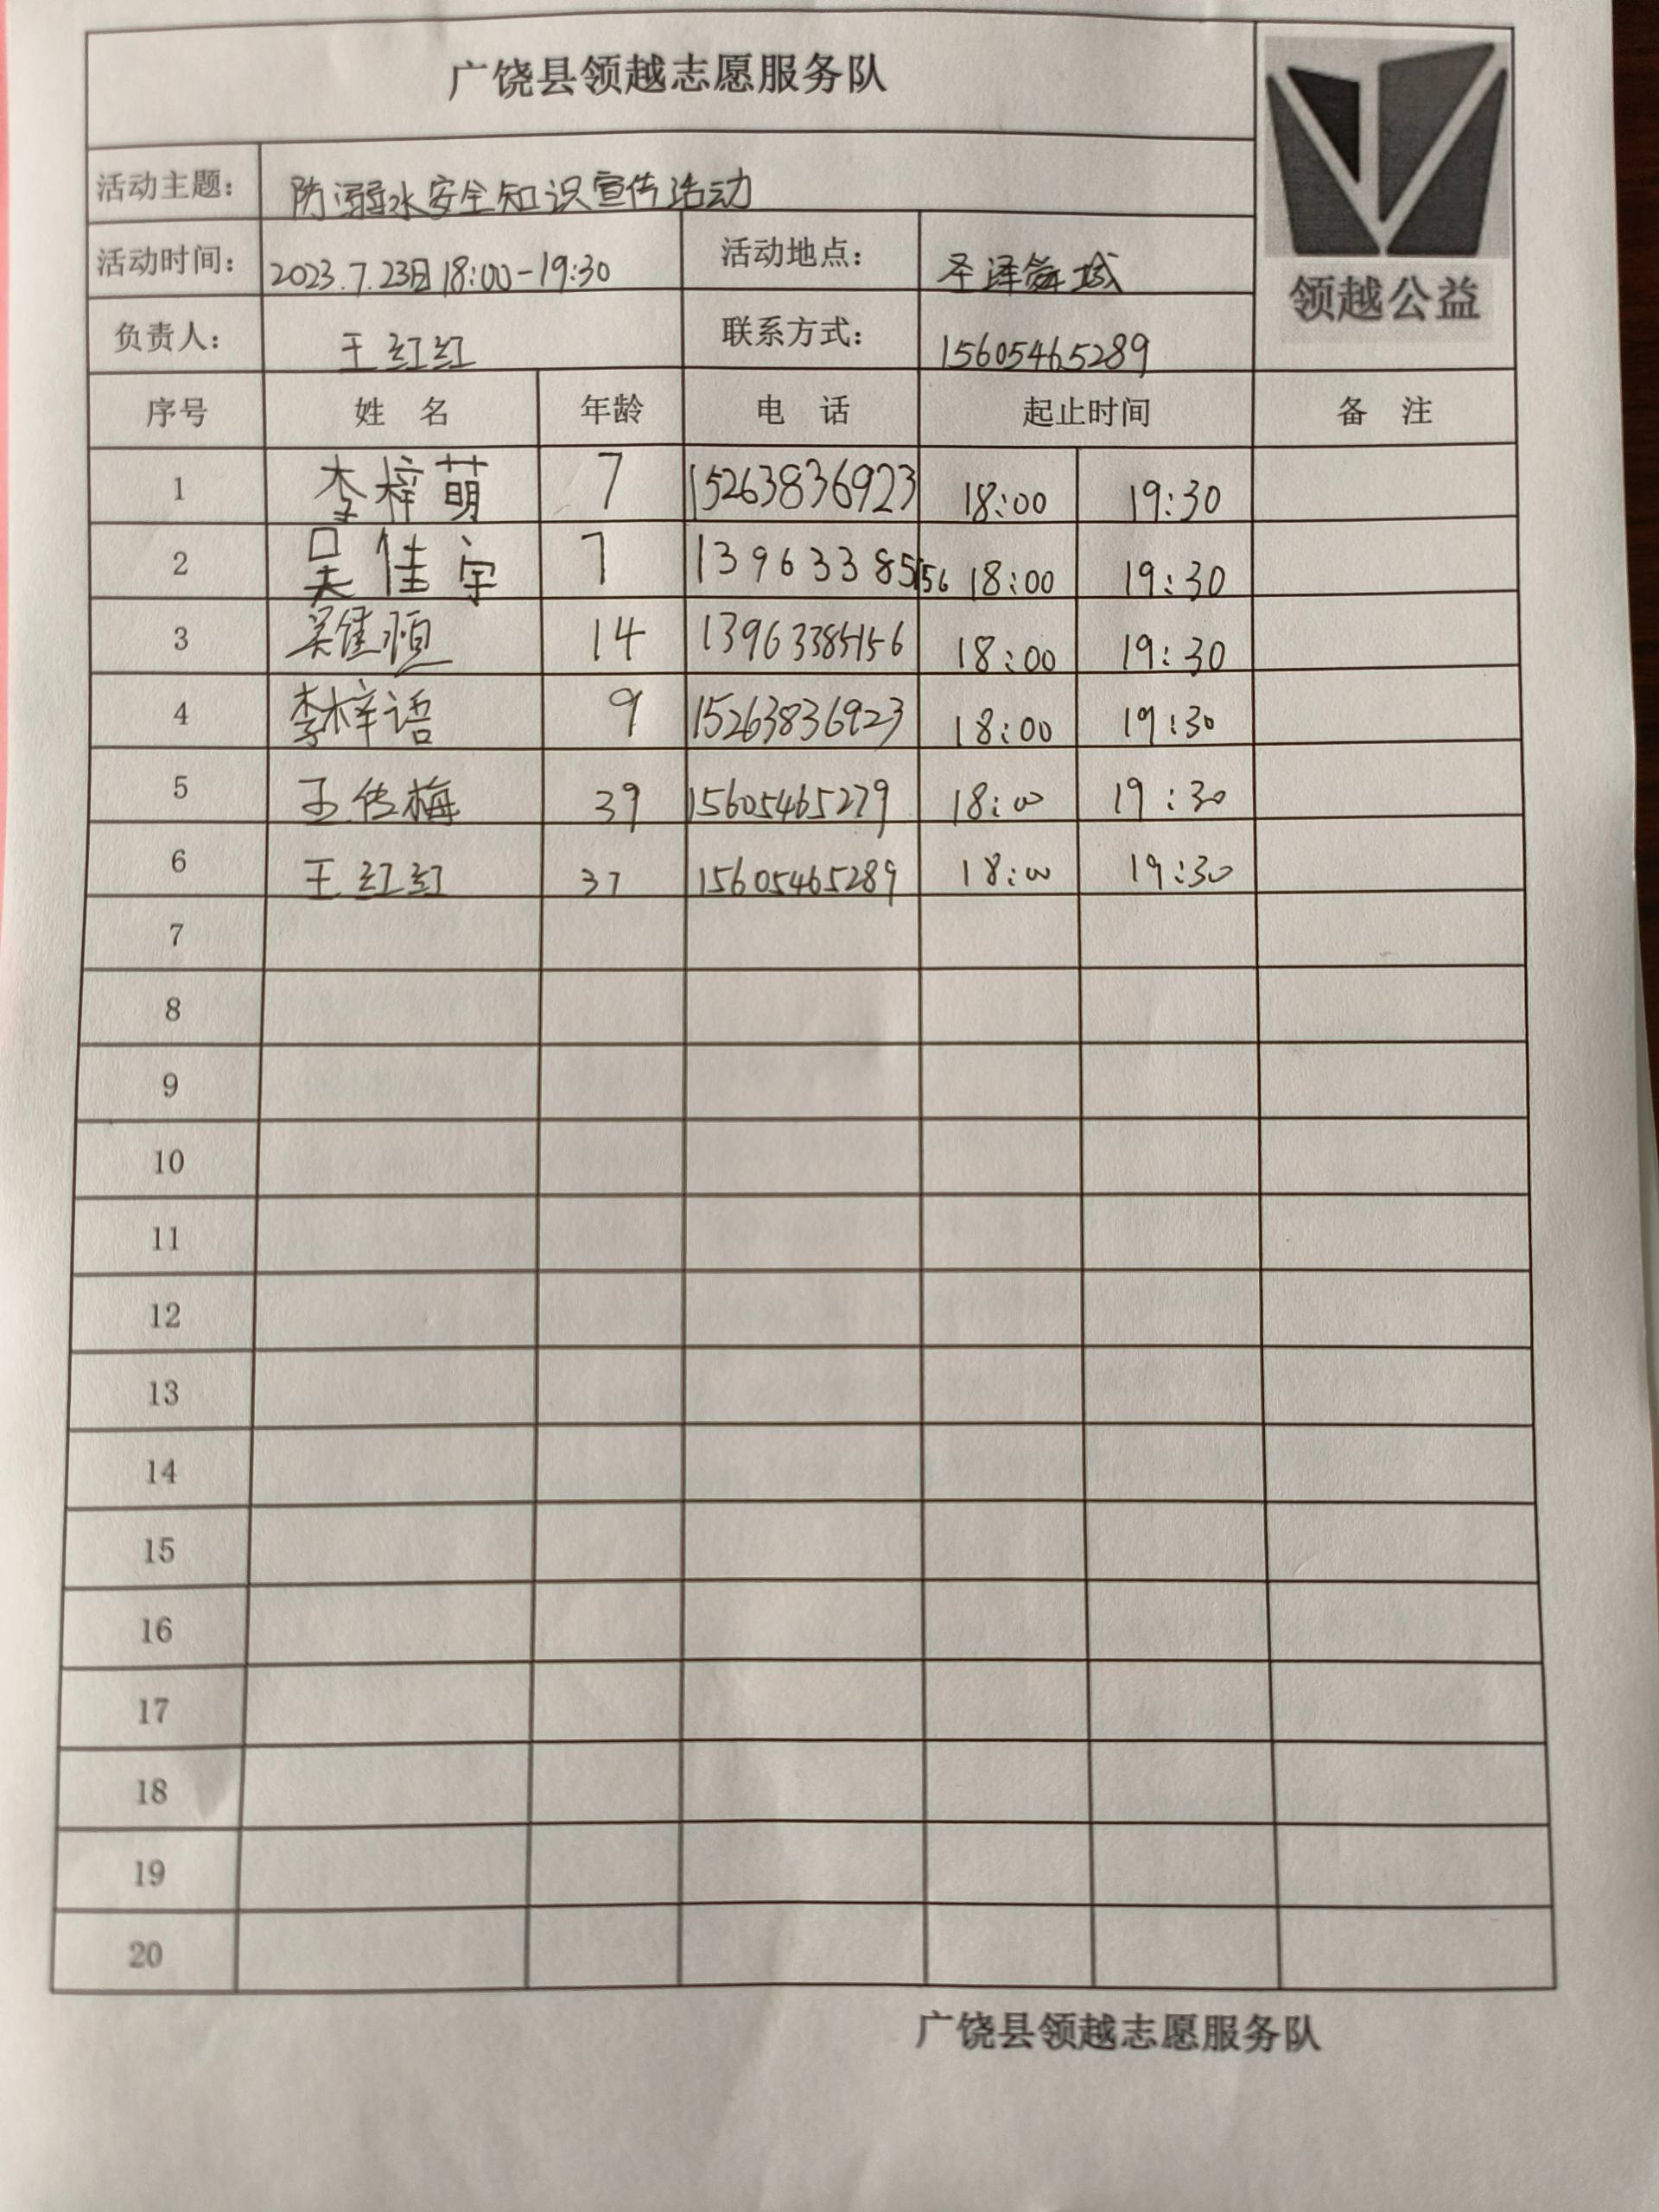 广饶县领越志愿服务队
活动主题： 防溺水安全知识宣传活动
活动时间： 2023.7.23日18:00-19:30 活动地点： 圣泽舞域
领越公益
负责人： 王红红 联系方式： 15605465289
序号 姓 名 年龄 电 话 起止时间 备 注
1 李梓萌 7 15263836923 18:00 19:30
2 吴佳宇 7 13963385156 18:00 19:30
3 吴佳恒 14 13963385156 18:00 19:30
4 李梓语 9 15263836923 18:00 19:30
5 王传梅 39 15605465279 18:00 19:30
6 王红红 37 15605465289 18:00 19:30
7
8
9
10
11
12
13
14
15
16
17
18
19
20
广饶县领越志愿服务队